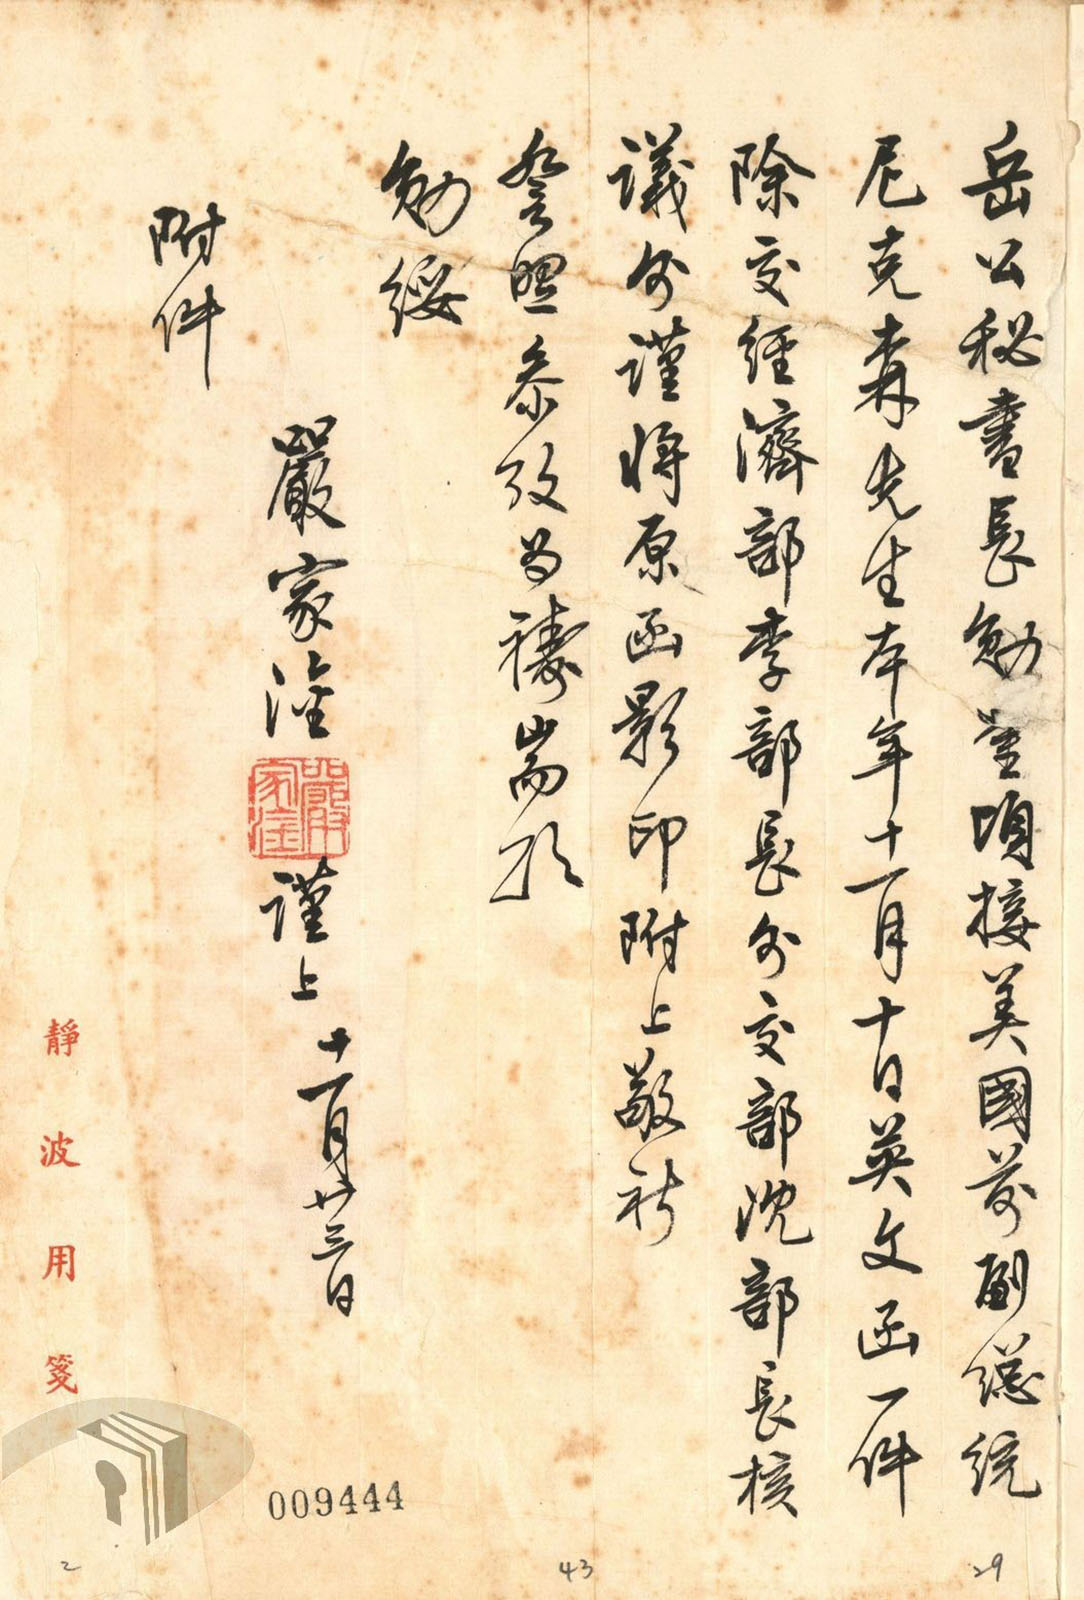 岳公秘書長勛鑒頃接美國前副總統
尼克森先生本年十一月十日英文函一件
除交經濟部李部長外交部沈部長核
議外謹將原函影印附上敬祈
詧照參攷為禱耑頌
勛綏
嚴家淦
嚴家淦
謹上 十一月廿三日
附件
靜波用箋
009444
29
43
2